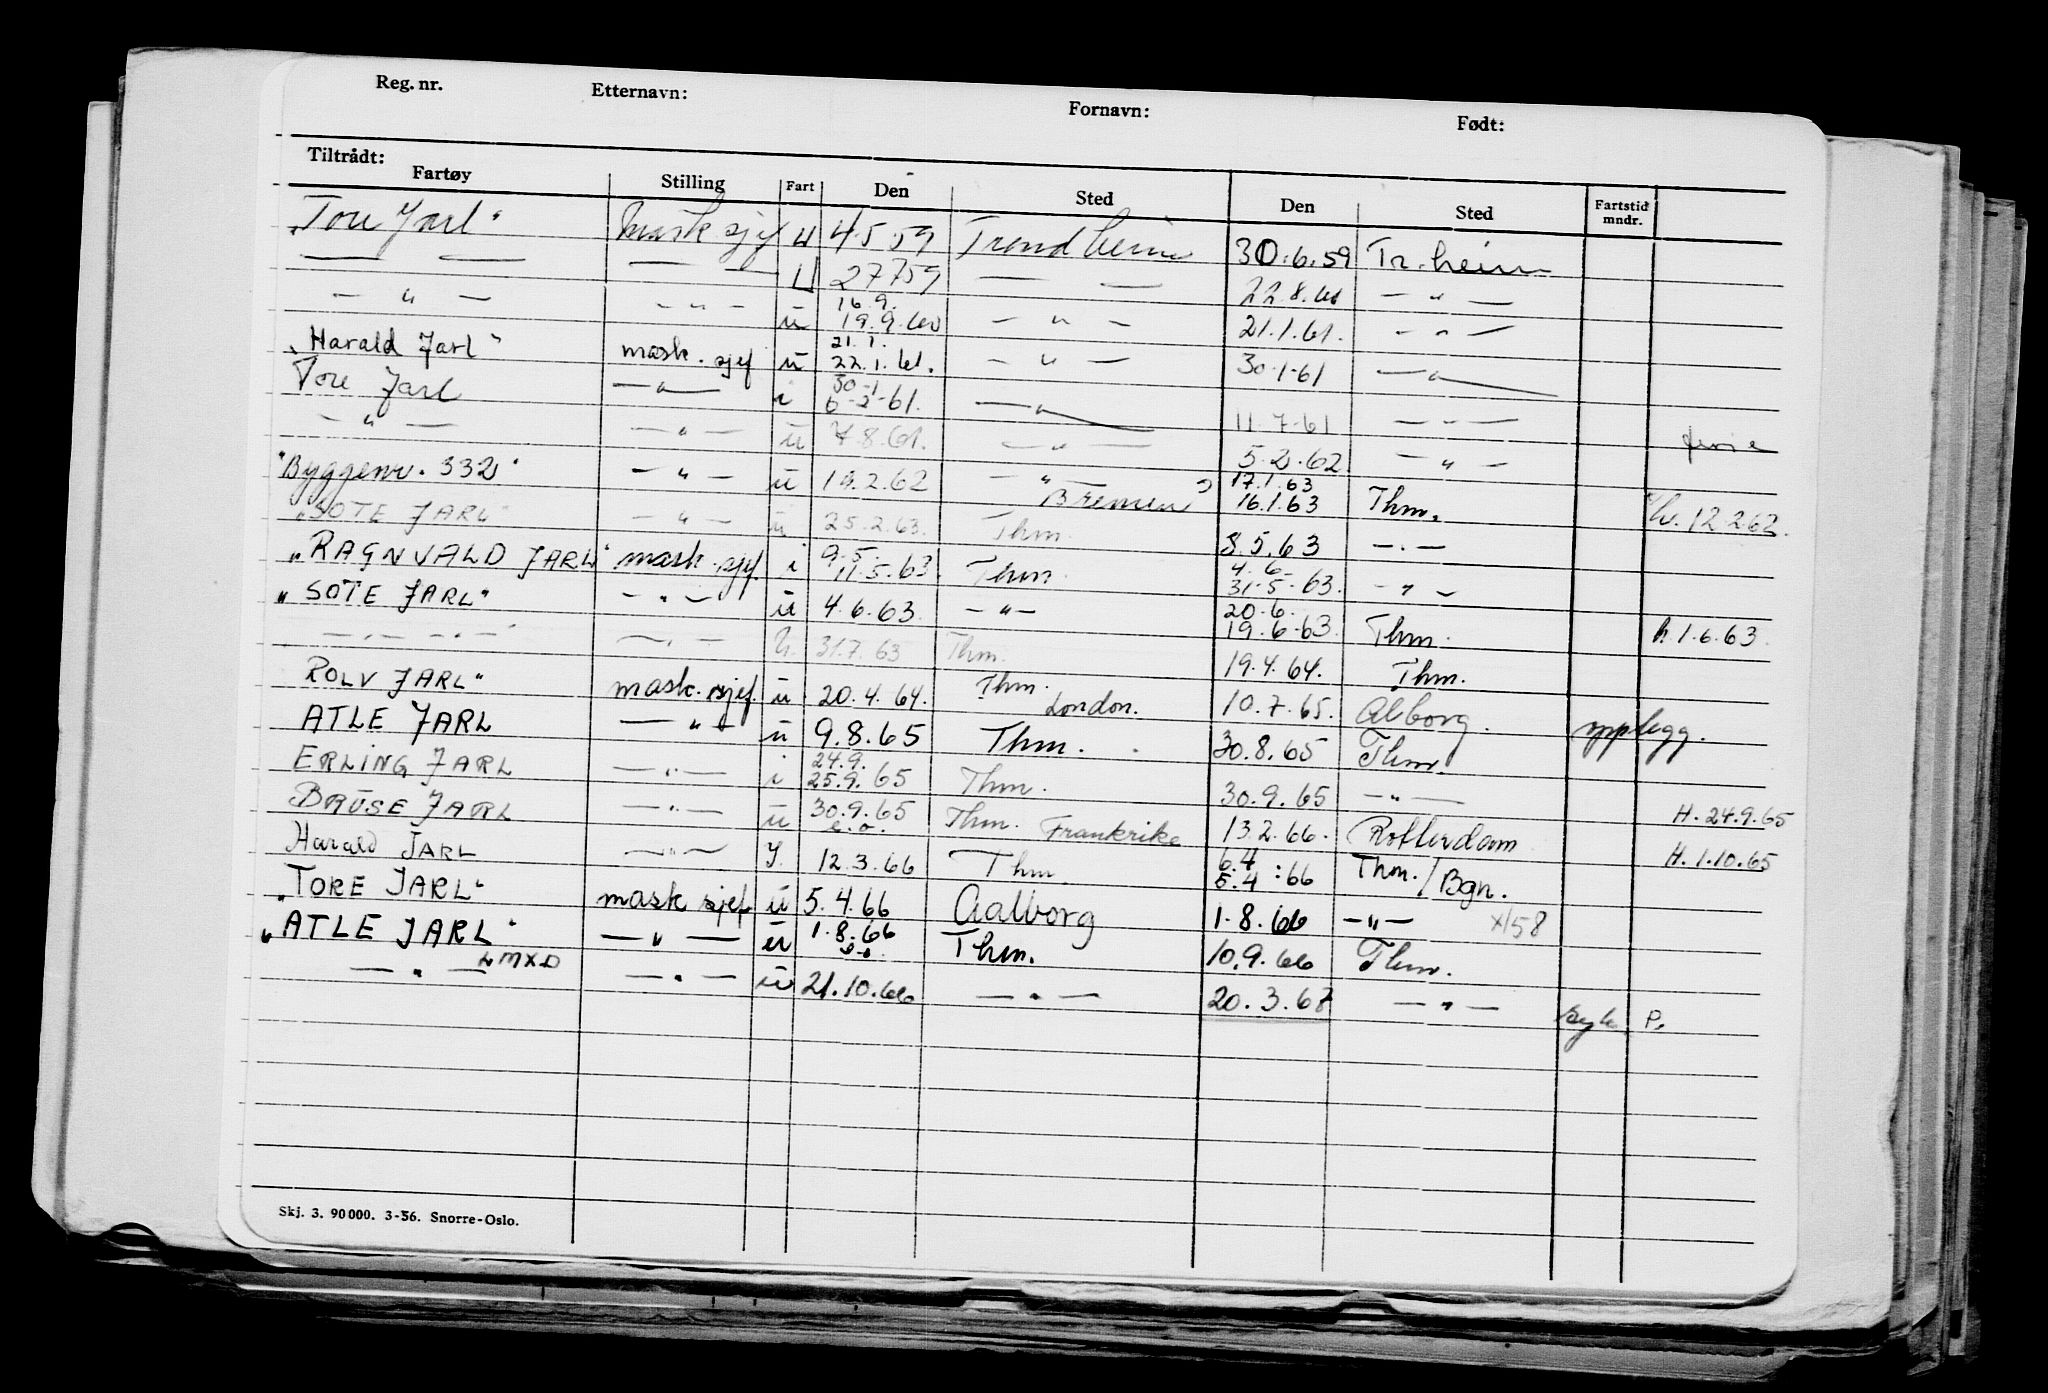 Reg. nr. Etternavn: Fornavn: Født:
Tiltrådt:
Fartøy Stilling Fart Den Sted Den Sted Fartstid mndr.
"Tore Jarl" Mask sjef U 4.5.59 Trondheim 30.6.59 Tr.heim
— — — — U 27 7 59 — — 22.8.60 — " —
— " — — " — u 16.9. 19.9.60 — " — 21.1.61. — " —
"Harald Jarl" mask. sjef u 21.1. 22.1.61. — " — 30-1-61 — " —
Tore Jarl — " — i 30-1 6-2-61. — " — 11-7-61 — " — ferie
— " — — " — u 7.8.61. — " — 5.2.62. — " —
"Byggenr. 332" — " — u 19.2.62 — " — Bremen 17.1.63 16.1.63 Thm. 12.2.62.
"SOTE JARL" — " — u 25.2.63. Thm. 8.5.63 — " —
"RAGNVALD JARL" mask. sjef. i 9.5. 11.5.63. Thm. 4.6. 31-5-63. — " —
"SOTE JARL" — " — u 4.6.63. — " — 20.6. 19.6-63. Thm. h. 1.6.63.
— " — — " — — " — U. 31.7.63 Thm. 19.4.64. Thm.
ROLV JARL" mask. sjef. u 20.4.64. Thm. London. 10.7.65. Alborg. opplegg.
ATLE JARL — " — u 9.8.65 Thm. 30.8.65 Thm.
ERLING JARL — " — i 24.9. 25.9.65 Thm. 30.9.65 — " — H. 24.9.65
BRUSE JARL — " — u 30.9.65 e.o. Thm. Frankrike 13.2.66. Rotterdam H. 1.10.65
Harald JARL — " — I. 12.3.66 Thm. 6.4 5.4:66 Thm./Bgn.
"TORE JARL" mask sjef u 5.4.66 Aalborg 1.8.66 — " — X/58
"ATLE JARL" — " — u 1.8.66 Thm. 10.9.66 Thm.
— " — LMXD — " — u 21.10.66 — " — 20.3.67 — " — syk P.
Skj. 3. 90 000. 3-56. Snorre-Oslo.